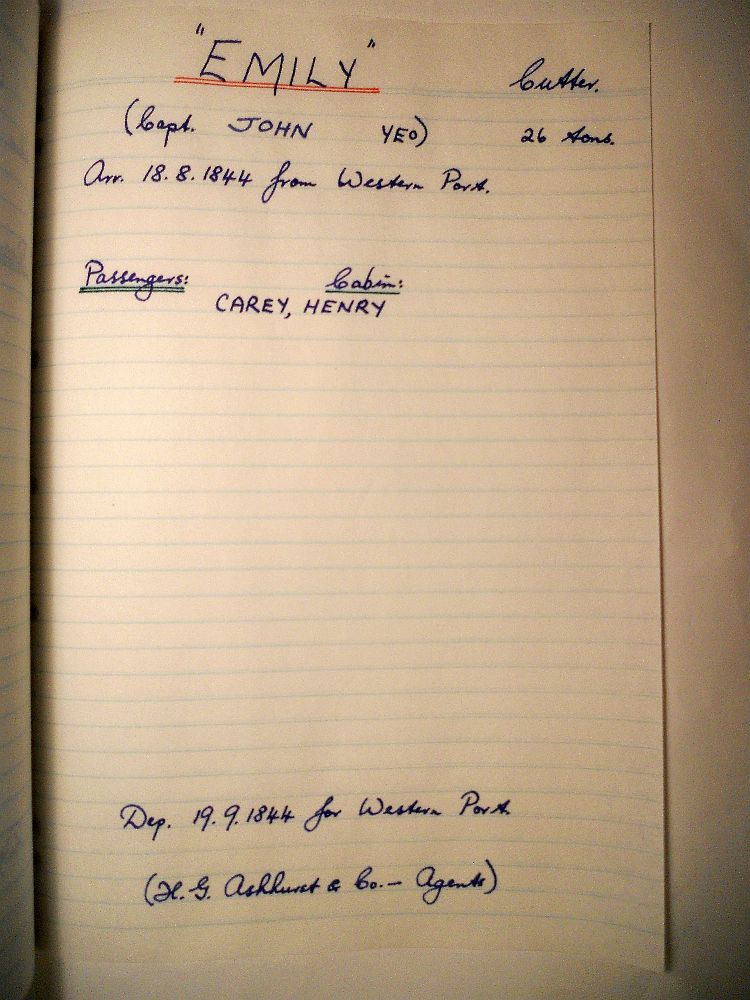 "EMILY" Cutter.
(Capt. JOHN YEO) 26 tons.
Arr. 18.8.1844 from Western Port.
Passengers: Cabin:
CAREY, HENRY
Dep. 19.9.1844 for Western Port.
(H. G. Ashhurst & Co. — Agents)